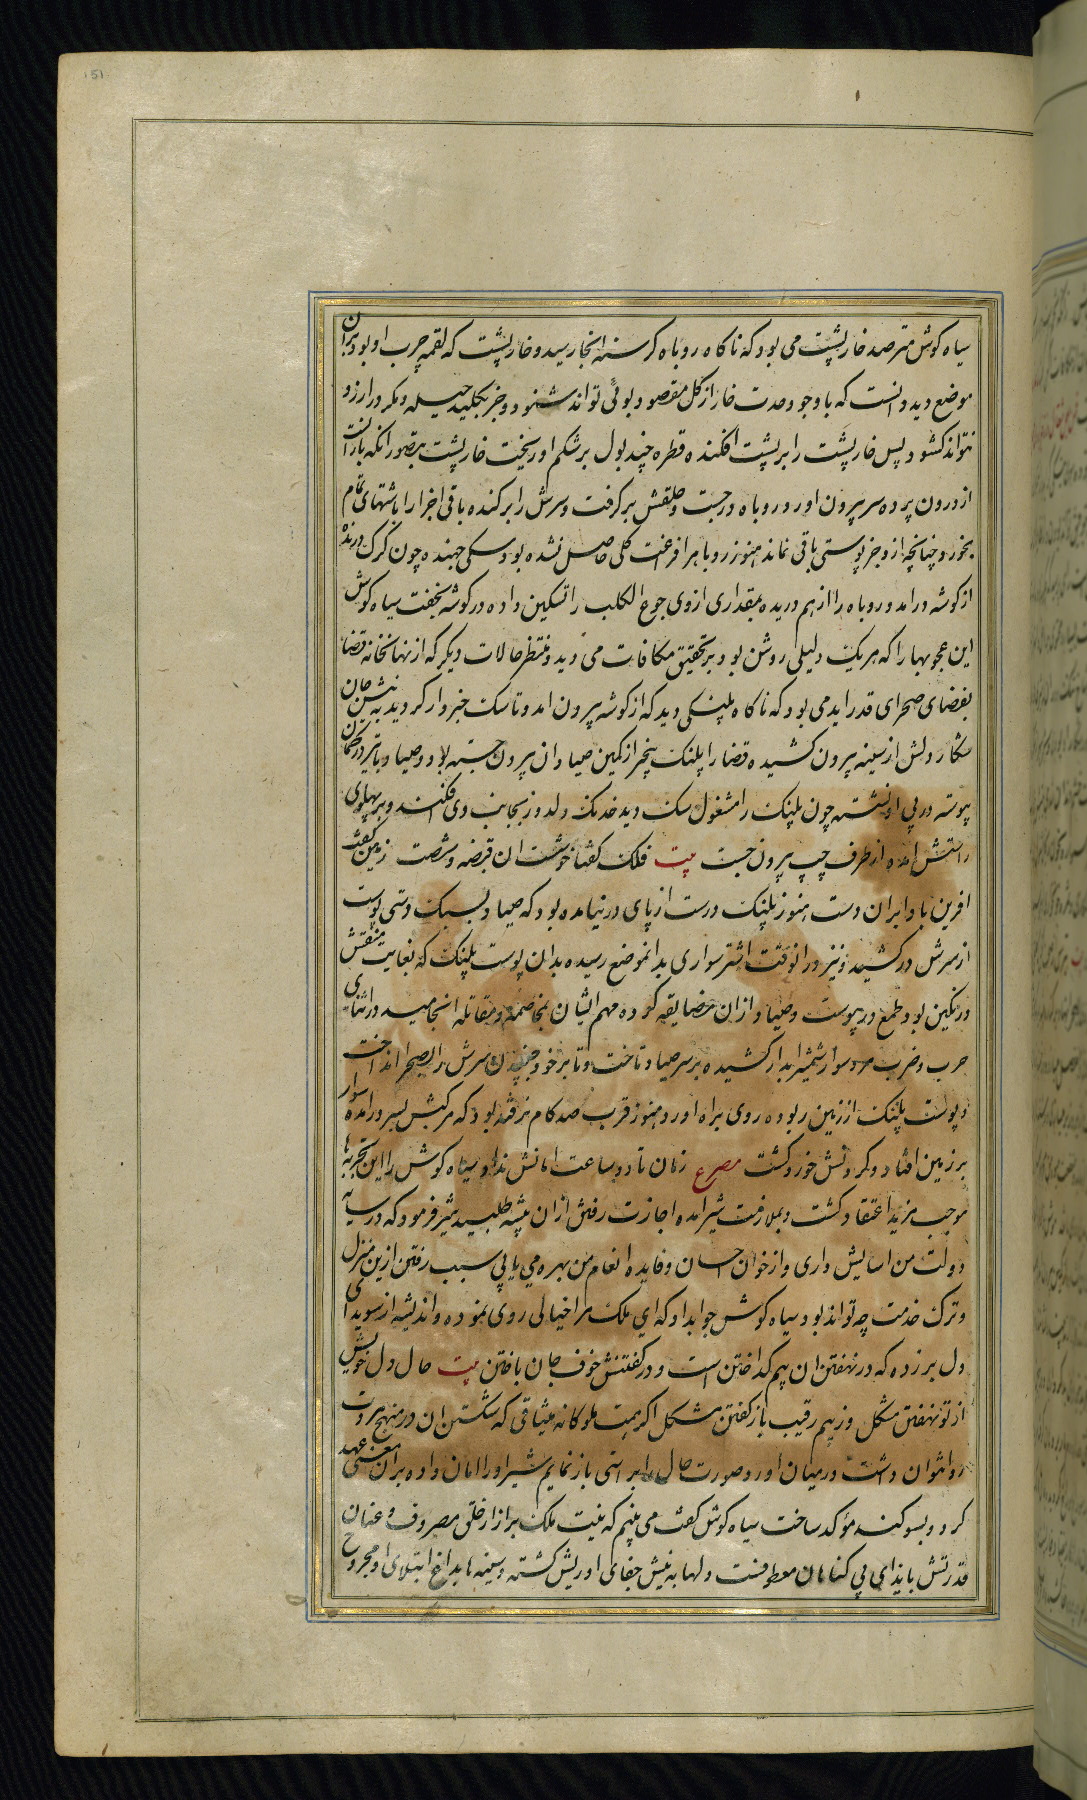 151
سیاه کوش مترصد خارپشت می بود که ناکاه روباه کرسنه انجا رسید و خارپشت که لقمه چرب او بود بران
موضع دید دانست که با وجود حدت خار از کل مقصود بوئی نتواند شنود و جز بکلید حیله و مکر در ارزو
نتواند کشود پس خارپشت را بر پشت افکنده قطره چند بول بر شکم او ریخت خارپشت بتصور انکه بارانست
از درون پرده سر بیرون اورد روباه درجست و حلقش بر کرفت و سرش را بر کنده باقی اجزا را باشتهای تمام
بخورد چنانچه از و جز پوستی باقی نماند هنوز روباه را فراغت کلی حاصل نشده بود سکی جهنده چون کرک درنده
از کوشه درامد و روباه را از هم دریده بمقداری از وی جوع الکلب را تسکین داده در کوشه بخفت سیاه کوش
این عجوبها را که هر یک دلیلی روشن بود بر تحقیق مکافات می دید و منتظر حالات دیکر که از نهانخانه قضا
بفضای صحرای قدر اید می بود که ناکاه پلنکی دید که از کوشه بیرون امد و تا سک خبردار کردید به نیش جان
شکار دلش از سینه بیرون کشیده قضا را پلنک نیز از کمین صیادان بیرون جسته بود و صیاد با تیر در کمان
پیوسته در پی او نشسته چون پلنک را مشغول سک دید خدنک دلدوز بجانب وی فکند و بر پهلوی
راستش امده از طرف چپ بیرون جست بیت فلک کفتا خوشست ان قبضه و شصت زمین کفت
افرین بادا بران دست هنوز پلنک درست از پای در نیامده بود که صیاد بسبک دستی پوست
از سرش در کشید و نیز در انوقت اشتر سواری بدانموضع رسیده بدان پوست پلنک که بغایت منقش
و رنکین بود طمع در پیوست و صیاد از ان مضایقه کرده مهم ایشان بمخاصمه و مقاتله انجامید و در اثنای
حرب و ضرب مرد سوار شمشیر ابدار کشیده بر سر صیاد تاخت و تا بر خود جنبیدن سرش را بصحرا انداخت
و پوست پلنک از زین ربوده روی براه اورد و هنوز قرب صد کام نرفته بود که مرکبش بسر درامده سوار
بر زمین افتاد و کردنش خورد کشت مصرع زمان تا دو ساعت امانش نداد سیاه کوش را این تجربه ها
موجب مزید اعتقاد کشت و بملازمت شیر امده اجازت رفتن از ان بیشه طلبید شیر فرمود که در سایه
دولت من اسایش داری و از خوان احسان و فایده انعام من بهره می یابی سبب رفتن ازین منزل
و ترک خدمت چه تواند بود سیاه کوش جواب داد که ای ملک مرا خیالی روی نموده و اندیشه از سویدای
دل بر زده که در نهفتن ان بیم کداختن است و در کفتنش خوف جان باختن بیت حال دل خویش
از تو نهفتن مشکل وز بیم رقیب باز کفتن مشکل اکر بهت ملوکانه میثاقی که شکستن ان در منهج مروت
روا نتوان داشت در میان اورد صورت حال را براستی باز نمایم شیر او را امان داده بران معنی عهد
کرد و بسوکند مؤکد ساخت سیاه کوش کفت می بینم که نیت ملک بر ازار خلق مصروف و عنان
قدرتش بایذای بی کناهان معطوفست دلها به نیش جفای او ریش کشته و سینها بداغ ابتلای او مجروح